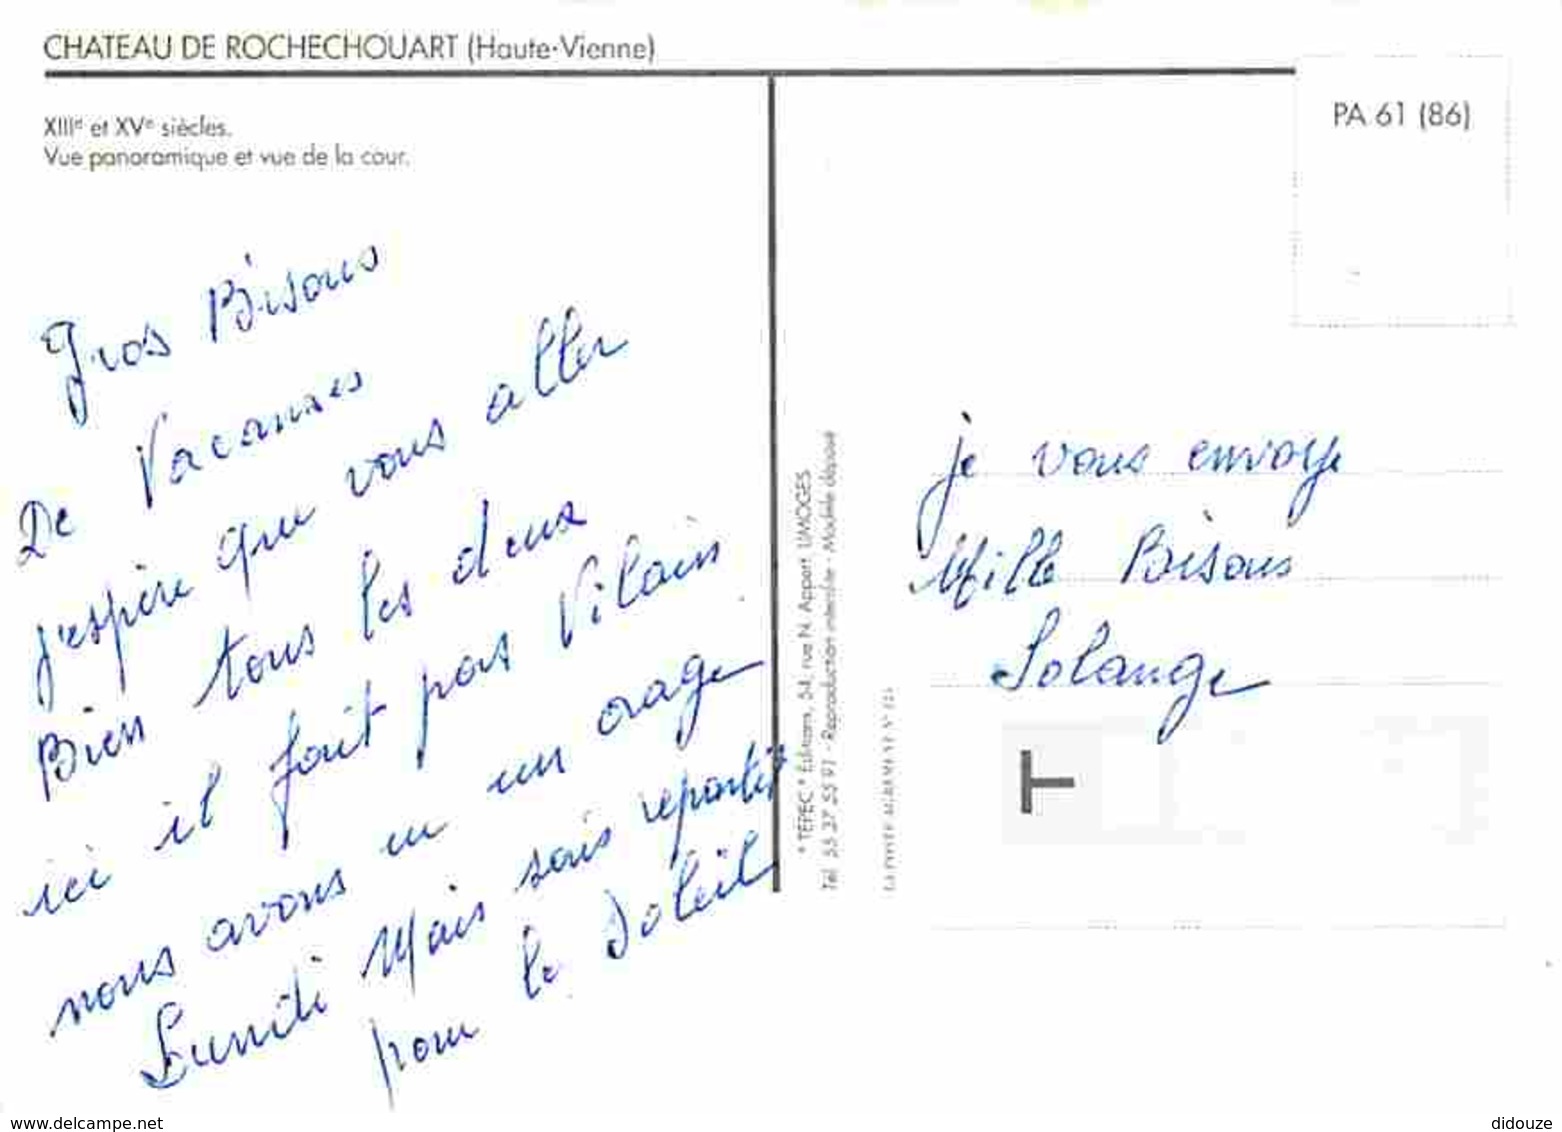 CHATEAU DE ROCHECHOUART (Haute-Vienne)
XIIIe et XVe siècles.
Vue panoramique et vue de la cour.
PA 61 (86)
Gros Bisous
De Vacances
j'espère que vous aller
Bien tous les deux
ici il fait pas Vilain
nous avons eu un orage
Lundi Mais sais repartit
pour le Soleil
"TEPEC" Éditions, 54, rue N. Appert LIMOGES
Tél. 55 37 55 91 - Reproduction interdite - Modèle déposé
LA POSTE AGRÉMENT N°
je vous envoye
Mille Bisous
Solange
T
www.delcampe.net
didouze